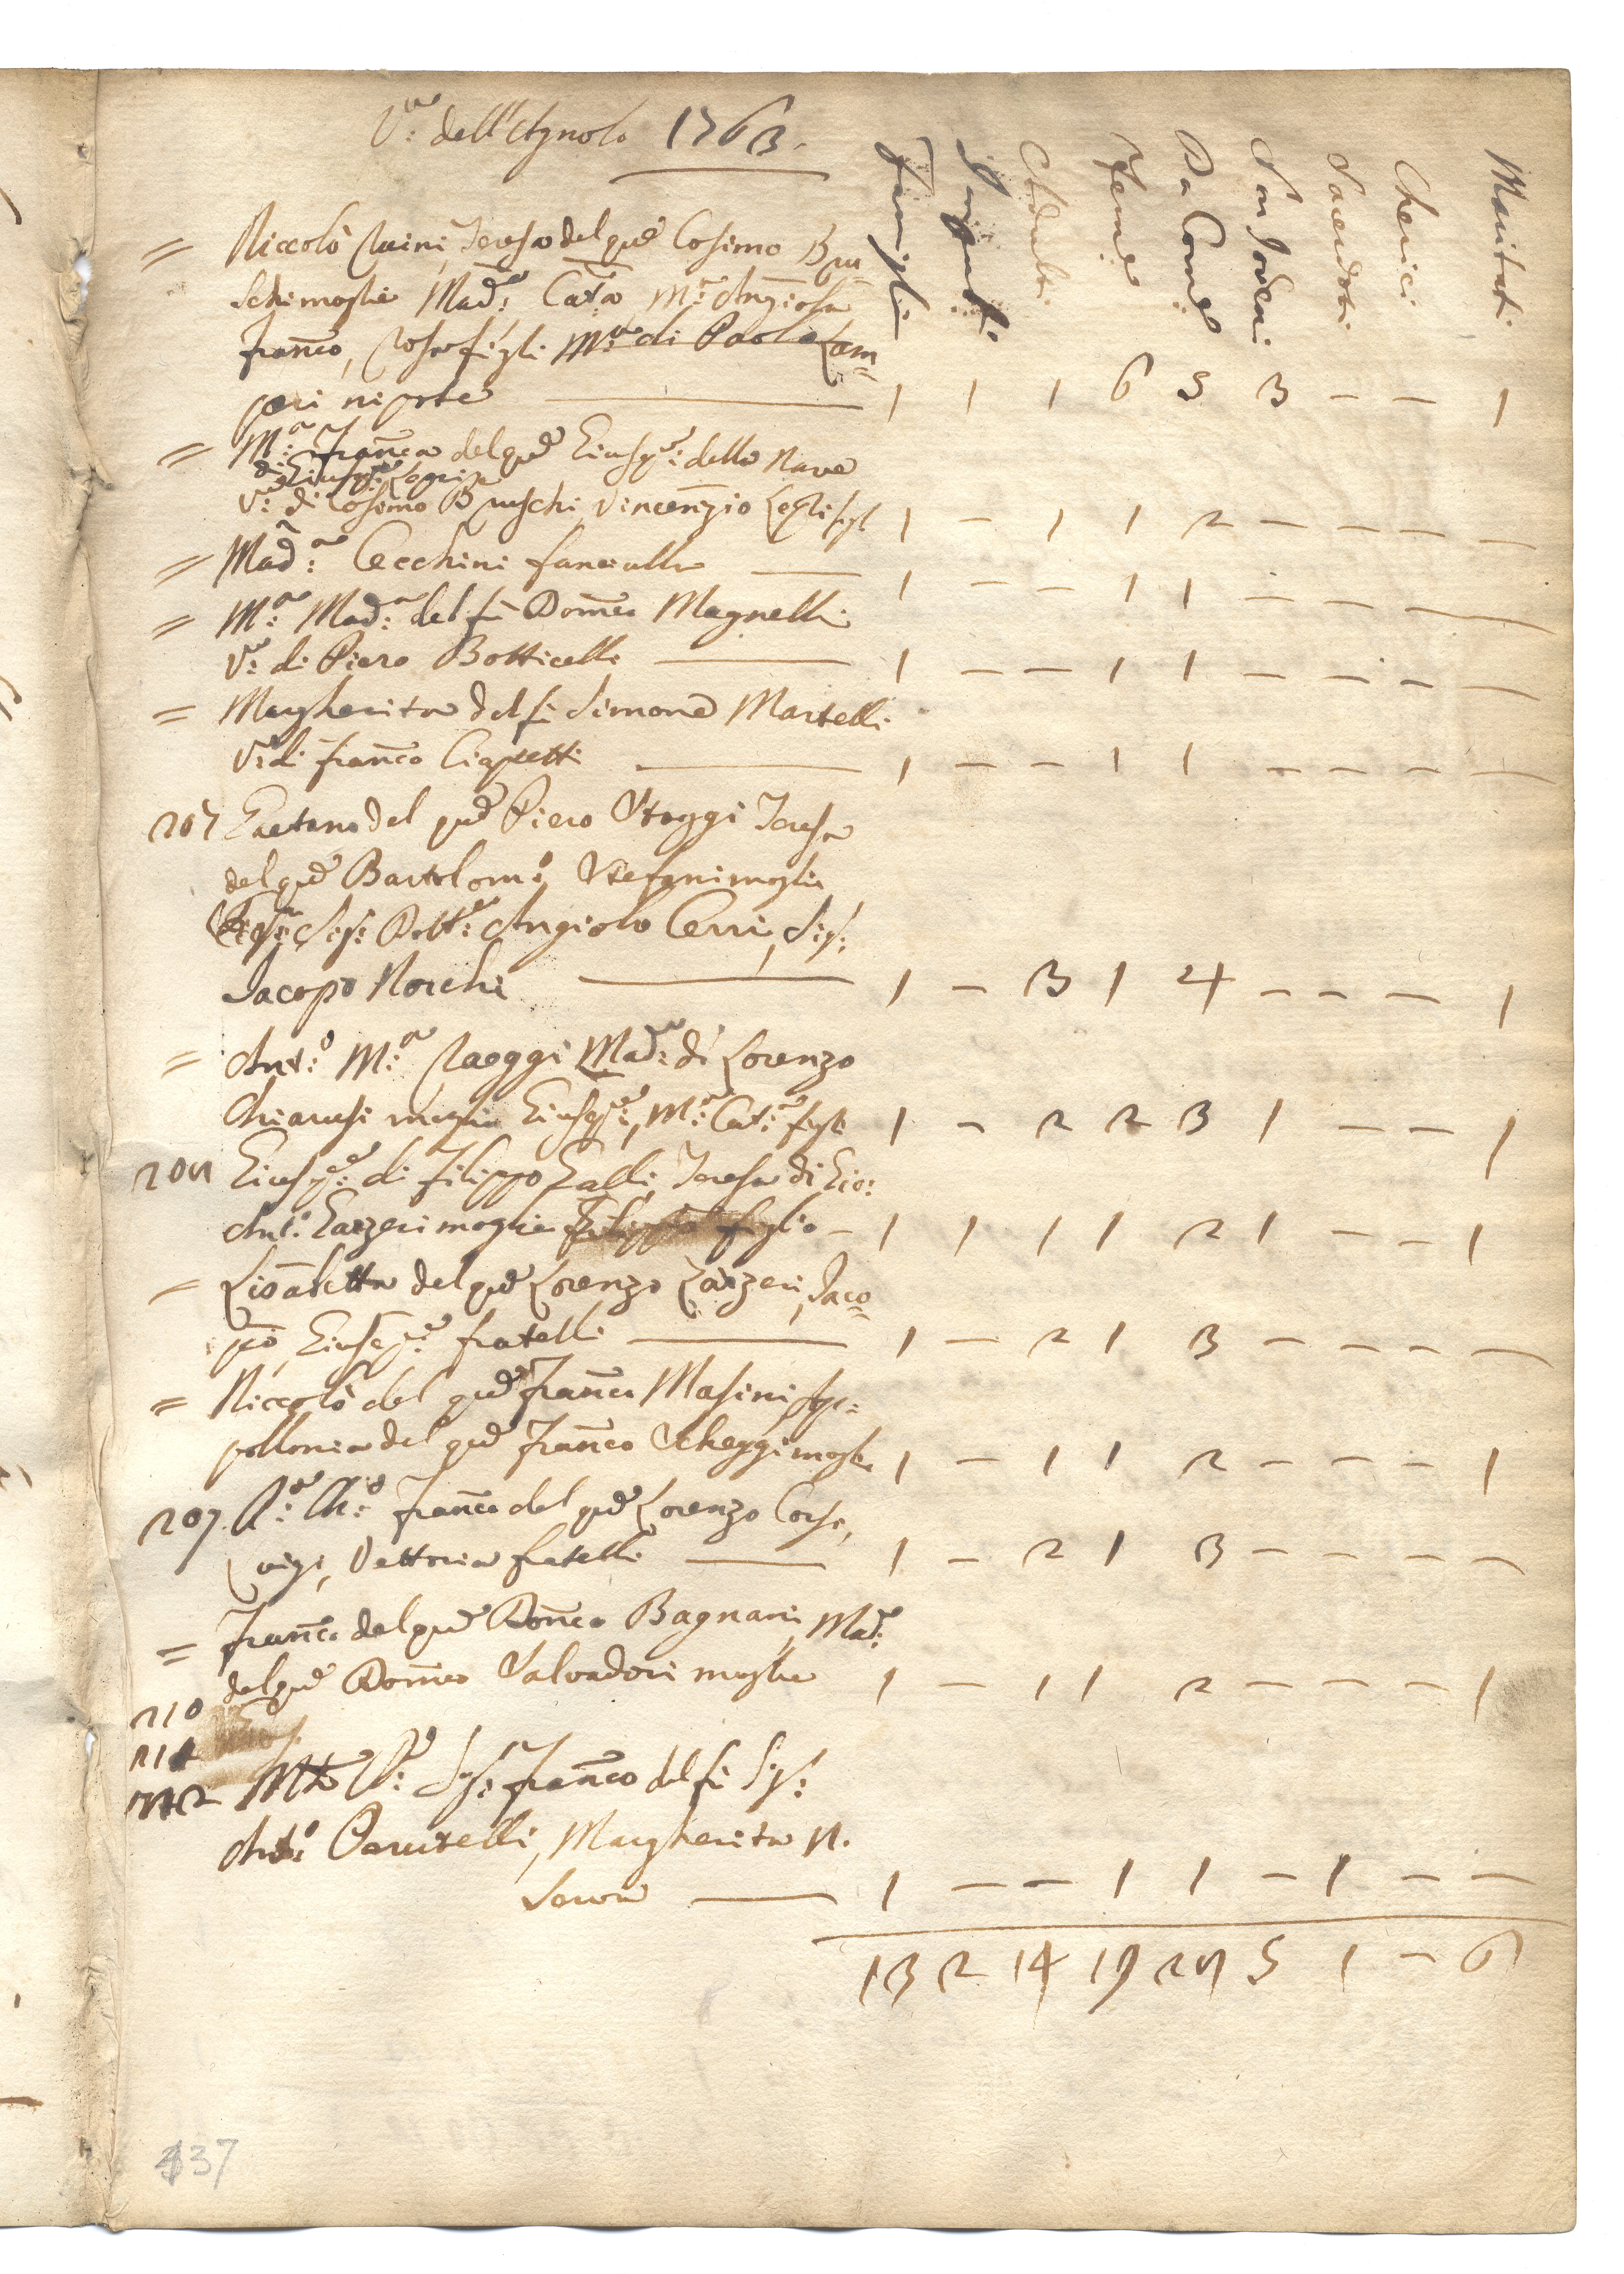 V.a dell'Agnolo 1763.
Famiglie Innocenti Adulti Feme Da Come Non Idonei Sacerdoti Cherici Maritati
= Niccolò Naini, Teresa del qud Cosimo Bru
schi moglie Mad.a Cat.a M.a Angiola
Franco, Rosa figli M.a di Paolo Lam=
peri nipote — 1 1 1 6 5 3 - - 1
= M.a Franca del qud Giusep.e della Nave
di Giusep.e
V.a di Cosimo Bruschi, Vincenzio figl 1 - 1 1 2 - - - -
= Mad.a Cecchini fanciulla — 1 - - 1 1 - - - -
= M.a Mad.a del fù Domco Magnelli
V.a di Piero Botticelli — 1 - - 1 1 - - - -
= Margherita del fù Simone Martelli
V.a di Franco Ciapetti — 1 - - 1 1 - - - -
207 Gaetano del qud Piero Staggi Teresa
del qud Bartolom.o Stefani moglie
Sig.e Dott.e Angiolo Cerri, Sig.e
Jacopo Norchi — 1 - 3 1 4 - - - 1
= Ant.o M.a Raeggi Mad.a di Lorenzo
Chiarusi moglie Giusep.e, M.a Cat.a figli 1 - 2 2 3 1 - - 1
208 Giusep.e di Filippo Galli, Teresa di Gio:
Ant.o Gazzeri moglie Filippo figlio - 1 1 1 1 2 1 - - 1
= Lisabetta del qud Lorenzo Gazzeri, Jaco=
po, Giusep.e fratelli — 1 - 2 1 3 - - - -
= Niccolò del qud Franco Masini Ap=
pollonia del qud Franco Scheggi moglie 1 - 1 1 2 - - - 1
209 R.o Ch.o Franco del qud Lorenzo Corsi,
Luigi, Vettoria fratelli — 1 - 2 1 3 - - - -
= Franco del qud Domco Bagnani, Mad.a
del qud Domco Salvadori moglie 1 - 1 1 2 - - - 1
210
211
212 Mto R.o Sig.e Franco del fù Sig.e
Ant.o Perutelli, Margherita N.
Serva — 1 - - 1 1 - 1 - -
13 2 14 19 28 5 1 - 6
437